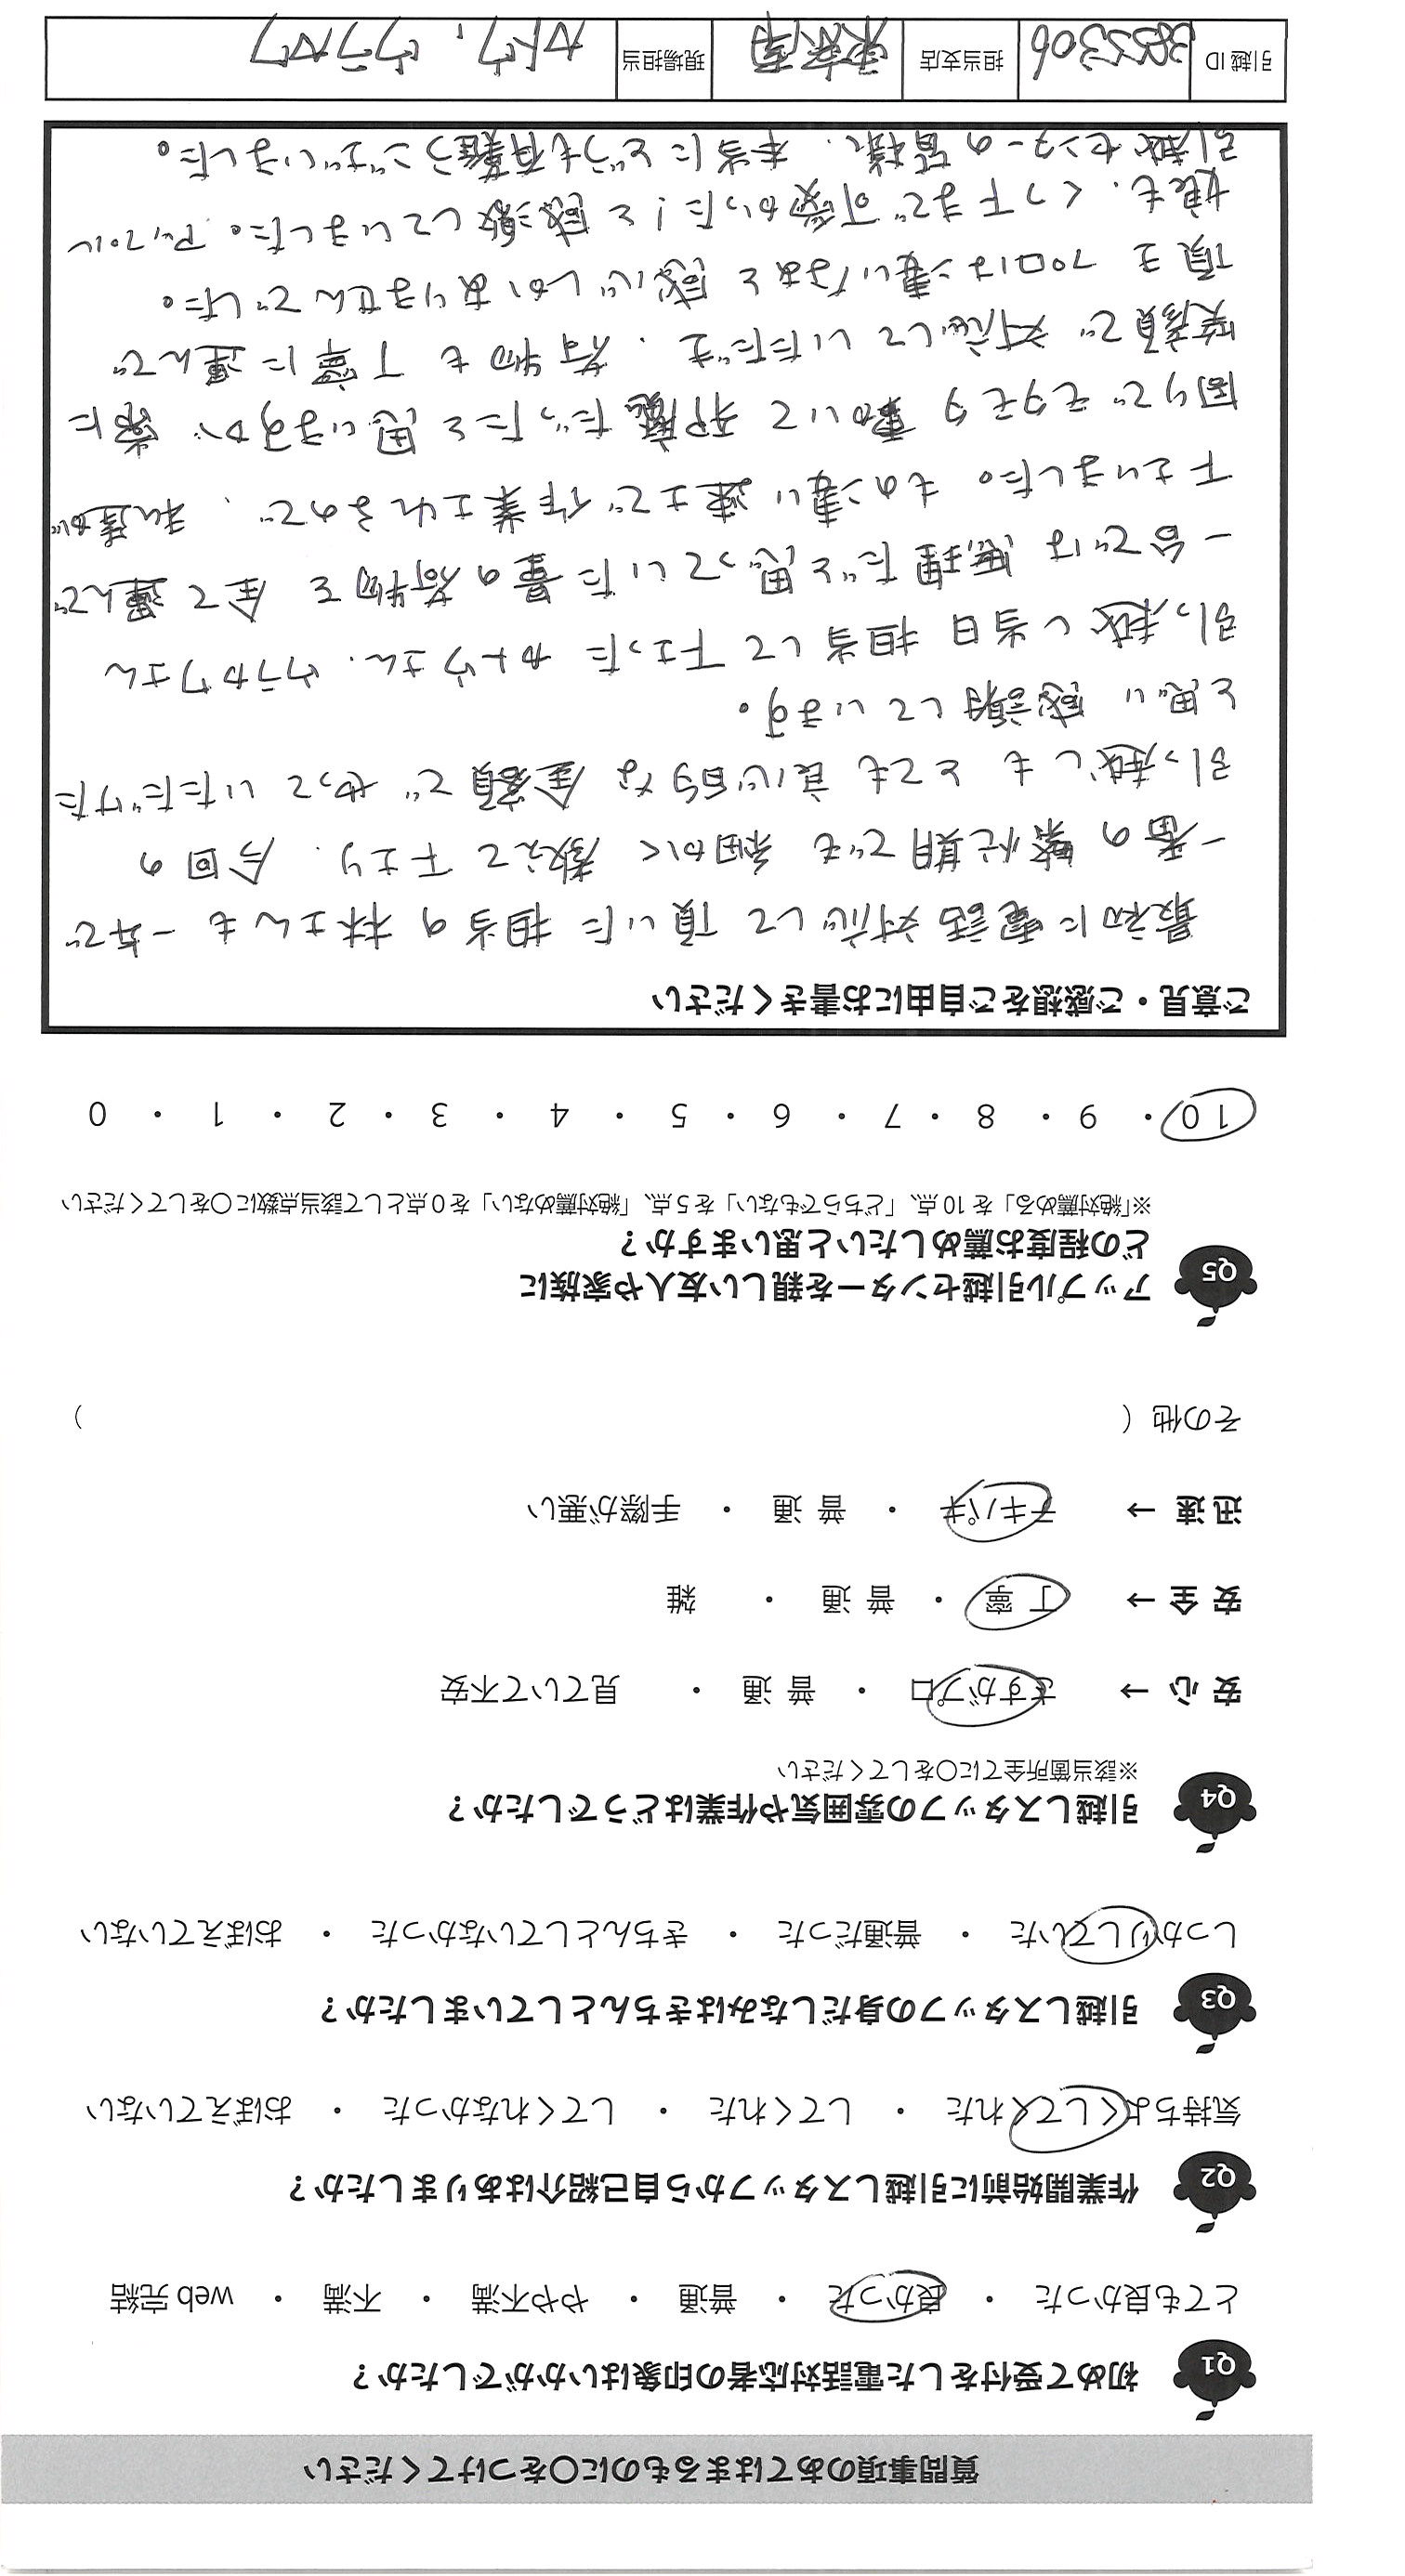 質問事項のあてはまるものに○をつけてください
Q1 初めて受付をした電話対応者の印象はいかがでしたか？
とても良かった ・ 良かった ・ 普通 ・ やや不満 ・ 不満 ・ web完結
Q2 作業開始前に引越しスタッフから自己紹介はありましたか？
気持ちよくしてくれた ・ してくれた ・ してくれなかった ・ おぼえていない
Q3 引越しスタッフの身だしなみはきちんとしていましたか？
しっかりしていた ・ 普通だった ・ きちんとしていなかった ・ おぼえていない
Q4 引越しスタッフの雰囲気や作業はどうでしたか？
※該当箇所全てに○をしてください
安心 → さすがプロ ・ 普通 ・ 見ていて不安
安全 → 丁寧 ・ 普通 ・ 雑
迅速 → テキパキ ・ 普通 ・ 手際が悪い
その他（ ）
Q5 アップル引越センターを親しい友人や家族に
どの程度お薦めしたいと思いますか？
※「絶対薦める」を10点、「どちらでもない」を5点、「絶対薦めない」を0点として該当点数に○をしてください
10 ・ 9 ・ 8 ・ 7 ・ 6 ・ 5 ・ 4 ・ 3 ・ 2 ・ 1 ・ 0
ご意見・ご感想をご自由にお書きください
最初に電話対応して頂いた担当の林さんも一年で
一番の繁忙期でも細かく教えて下さり、今回の
引っ越しもとても良心的な金額でやっていただけた
と思い感謝しています。
引っ越し当日担当して下さったカトウさん、ウラカワさん
一台では無理だと思っていた量の荷物を全て運んで
下さいました。もの凄い速さで作業されるので、私達が
周りでモタモタ動いて邪魔だったと思いますが、常に
笑顔で対応していただき、荷物も丁寧に運んで
頂き プロは凄いなぁと感心しかありませんでした。
娘も、くつ下まで可愛かった！と感激していました。アップル
引越センターの皆様、本当にどうも有難うございました。
引越ID 3855306 担当支店 東京南 現場担当 カトウ、ウラカワ